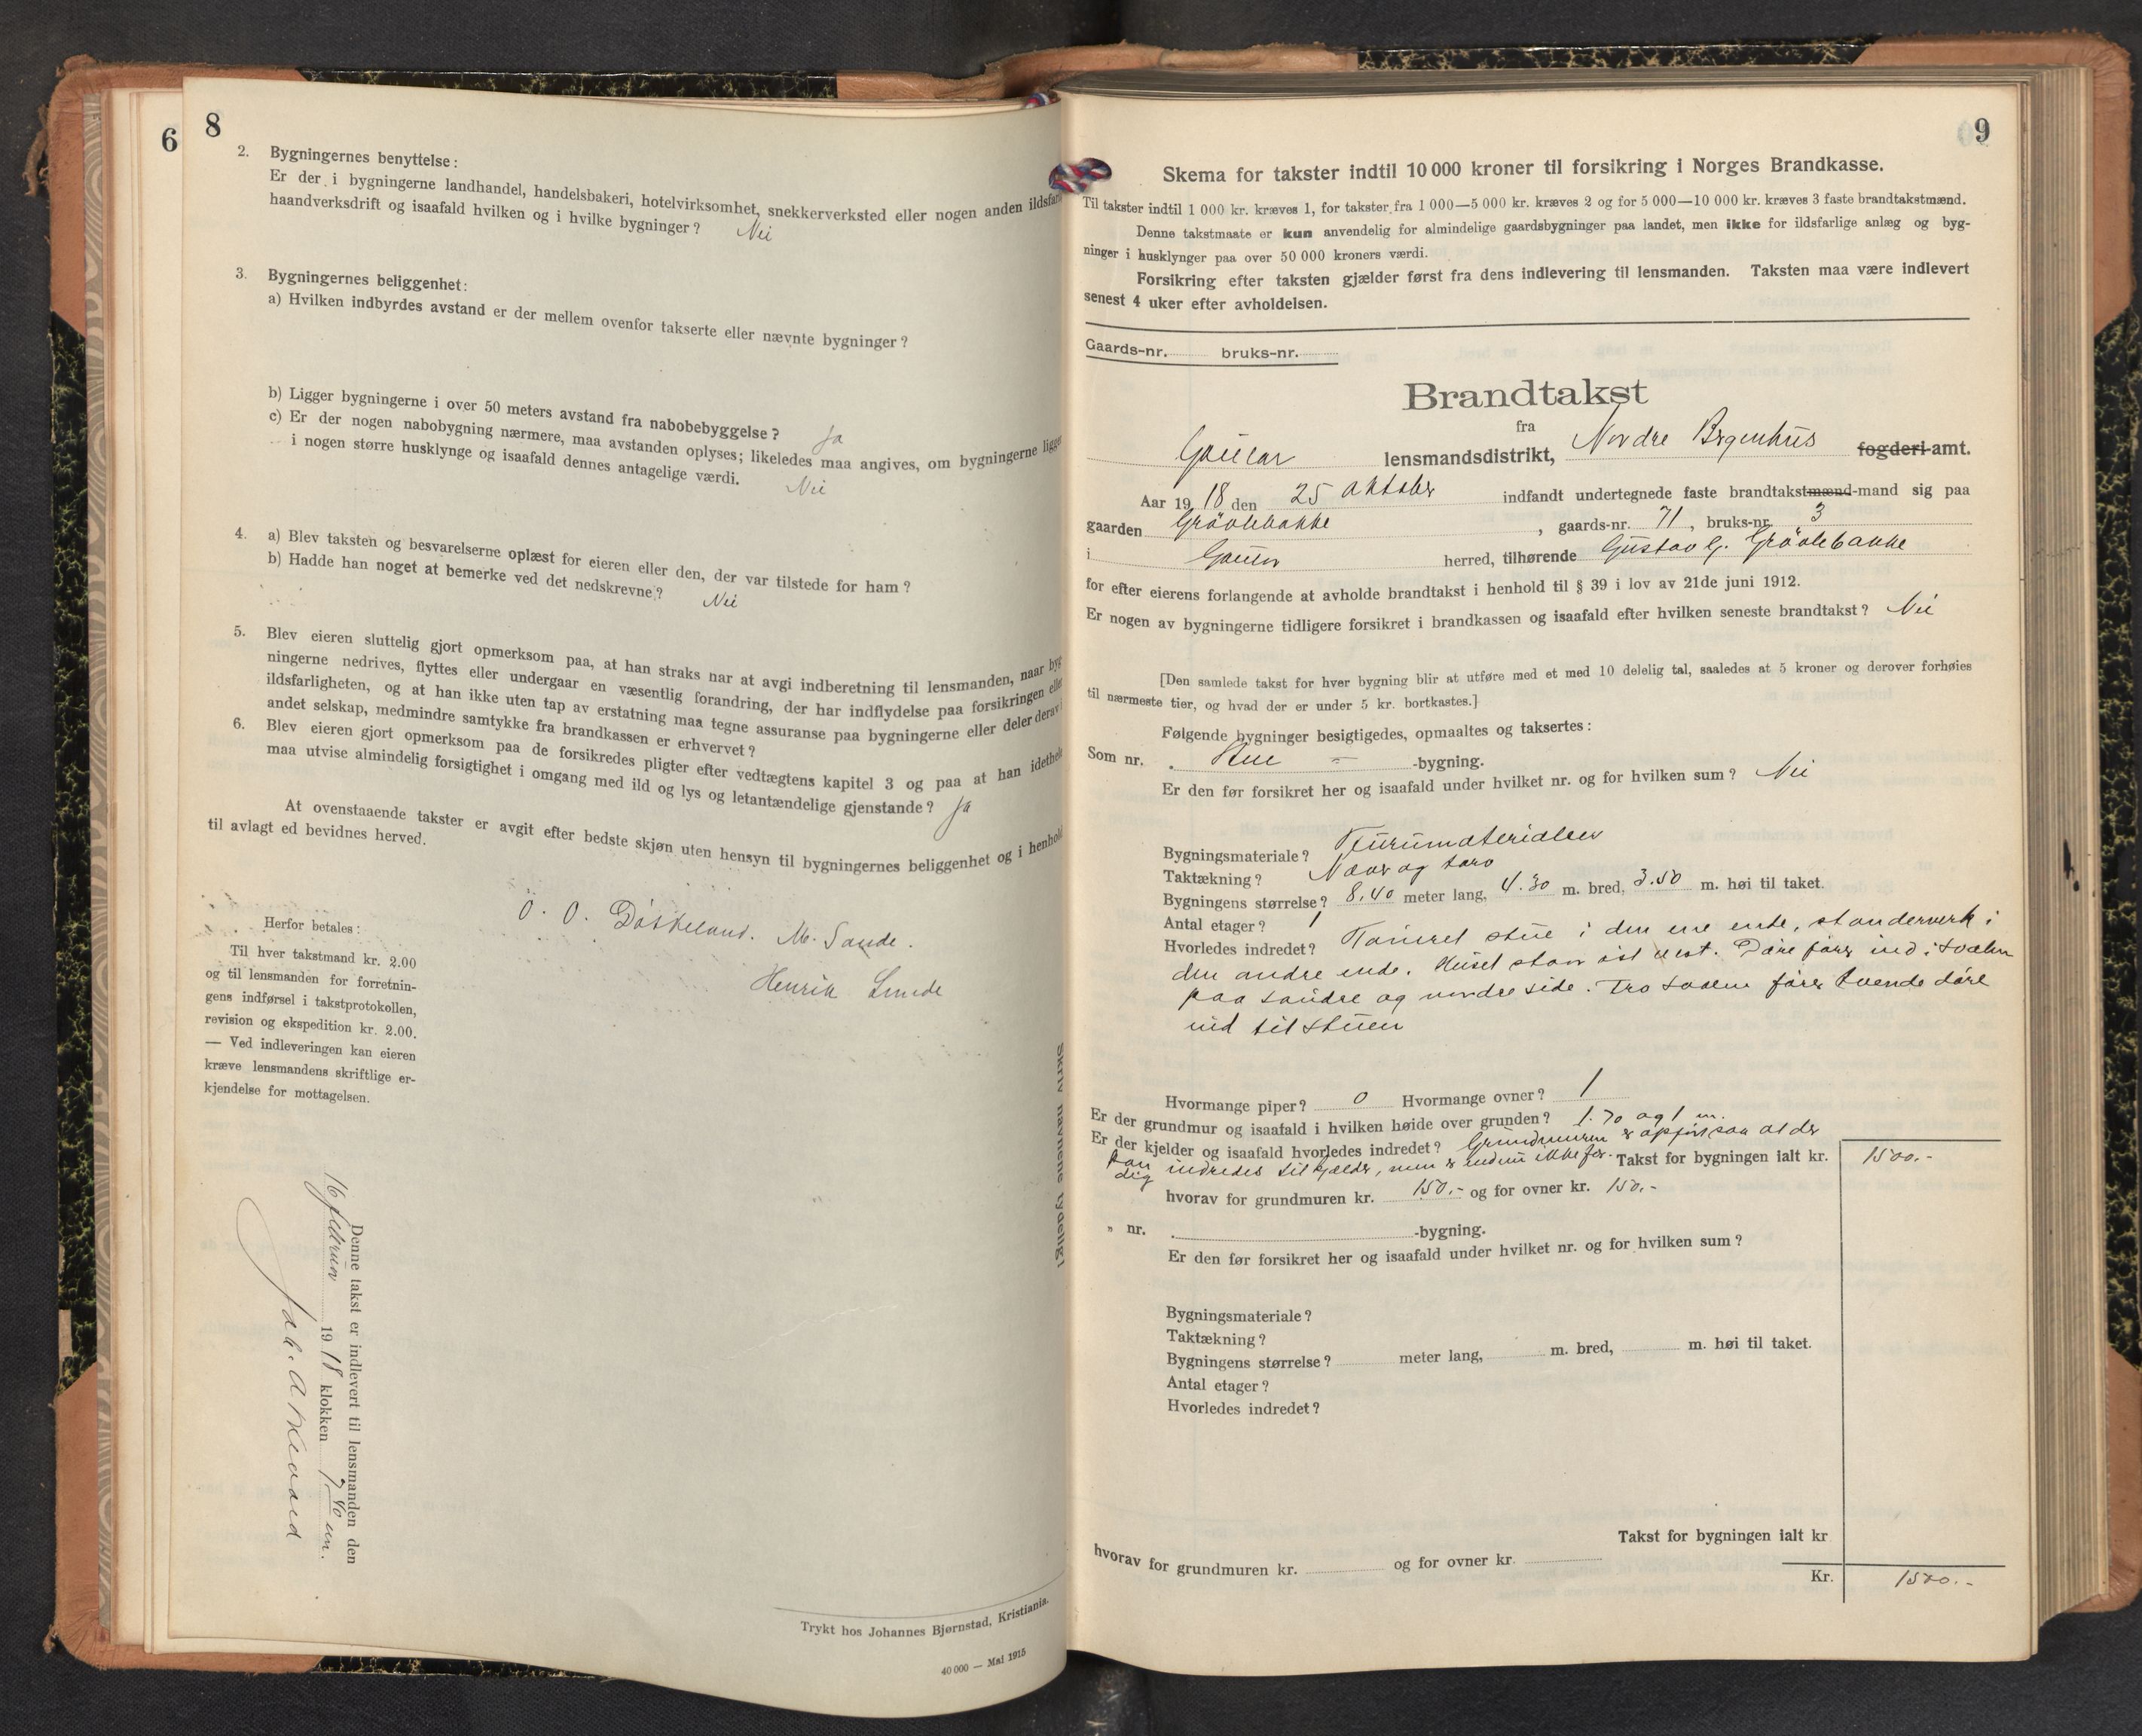 6
8
2. Bygningernes benyttelse:
Er der i bygningerne landhandel, handelsbakeri, hotelvirksomhet, snekkerverksted eller nogen anden ildsfarl
haandverksdrift og isaafald hvilken og i hvilke bygninger? Nei
3. Bygningernes beliggenhet:
a) Hvilken indbyrdes avstand er der mellem ovenfor takserte eller nævnte bygninger?
b) Ligger bygningerne i over 50 meters avstand fra nabobebyggelse? Ja
c) Er der nogen nabobygning nærmere, maa avstanden oplyses; likeledes maa angives, om bygningerne ligger
i nogen større husklynge og isaafald dennes antagelige værdi. Nei
4. a) Blev taksten og besvarelserne oplæst for eieren eller den, der var tilstede for ham?
b) Hadde han noget at bemerke ved det nedskrevne? Nei
5. Blev eieren sluttelig gjort opmerksom paa, at han straks har at avgi indberetning til lensmanden, naar byg
ningerne nedrives, flyttes eller undergaar en væsentlig forandring, der har indflydelse paa forsikringen eller
ildsfarligheten, og at han ikke uten tap av erstatning maa tegne assuranse paa bygningerne eller deler derav i
andet selskap, medmindre samtykke fra brandkassen er erhvervet?
6. Blev eieren gjort opmerksom paa de forsikredes pligter efter vedtægtens kapitel 3 og paa at han idethele
maa utvise almindelig forsigtighet i omgang med ild og lys og letantændelige gjenstande? Ja
At ovenstaaende takster er avgit efter bedste skjøn uten hensyn til bygningernes beliggenhet og i henhold
til avlagt ed bevidnes herved.
O. O. Døskeland. M. Sande.
Henrik Lunde
Herfor betales:
Til hver takstmand kr. 2.00
og til lensmanden for forretnin-
gens indførsel i takstprotokollen,
revision og ekspedition kr. 2.00.
— Ved indleveringen kan eieren
kræve lensmandens skriftlige er-
kjendelse for mottagelsen.
Denne takst er indlevert til lensmanden den
16 februar 1918 klokken 7.40 em.
Skriv navnene tydelig!
Trykt hos Johannes Bjørnstad, Kristiania.
40 000 — Mai 1915
9
Skema for takster indtil 10 000 kroner til forsikring i Norges Brandkasse.
Til takster indtil 1 000 kr. kræves 1, for takster fra 1 000—5 000 kr. kræves 2 og for 5 000—10 000 kr. kræves 3 faste brandtakstmænd.
Denne takstmaate er kun anvendelig for almindelige gaardsbygninger paa landet, men ikke for ildsfarlige anlæg og byg-
ninger i husklynger paa over 50 000 kroners værdi.
Forsikring efter taksten gjælder først fra dens indlevering til lensmanden. Taksten maa være indlevert
senest 4 uker efter avholdelsen.
Gaards-nr. bruks-nr.
Brandtakst
fra
Gaular lensmandsdistrikt, Nordre Bergenhus fogderi-amt.
Aar 1918 den 25 oktober indfandt undertegnede faste brandtakstmænd-mand sig paa
gaarden Grövlebakke, gaards-nr. 71, bruks-nr. 3
i Gaular herred, tilhørende Gustav G. Grövlebakke
for efter eierens forlangende at avholde brandtakst i henhold til § 39 i lov av 21de juni 1912.
Er nogen av bygningerne tidligere forsikret i brandkassen og isaafald efter hvilken seneste brandtakst? Nei
[Den samlede takst for hver bygning blir at utføre med et med 10 delelig tal, saaledes at 5 kroner og derover forhøies
til nærmeste tier, og hvad der er under 5 kr. bortkastes.]
Følgende bygninger besigtigedes, opmaaltes og taksertes:
Som nr. Stue -bygning.
Er den før forsikret her og isaafald under hvilket nr. og for hvilken sum? Nei
Bygningsmateriale? Furumaterialer
Taktækning? Næver og torv
Bygningens størrelse? 8.40 meter lang, 4.30 m. bred, 3.50 m. høi til taket.
Antal etager? 1
Hvorledes indredet? Tömret stue i den ene ende, standerverk i
den andre ende. Huset staar öst vest. Döre förer ind i svalen
paa söndre og nordre side. Fra svalen förer tvende döre
ind til stuen
Hvormange piper? 0 Hvormange ovner? 1
Er der grundmur og isaafald i hvilken høide over grunden? 1.70 og 1 m.
Er der kjelder og isaafald hvorledes indredet? Grundmuren er opfört saa at der
kan indredes til kjelder, men er endnu ikke fær- Takst for bygningen ialt kr. 1500.-
dig
hvorav for grundmuren kr. 150.- og for ovner kr. 150.-
„ nr. -bygning.
Er den før forsikret her og isaafald under hvilket nr. og for hvilken sum?
Bygningsmateriale?
Taktækning?
Bygningens størrelse? meter lang, m. bred, m. høi til taket.
Antal etager?
Hvorledes indredet?
Takst for bygningen ialt kr
hvorav for grundmuren kr. og for ovner kr.
Kr. 1500.-